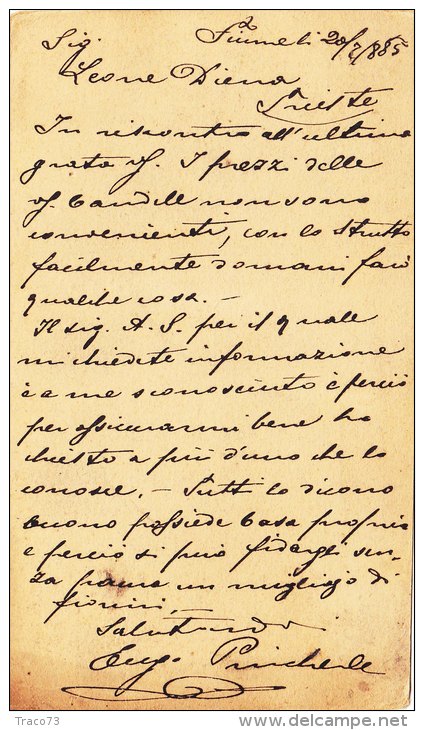 Sig. Fiume li 20/7/885
Leone Diena
Trieste
In riscontro all'ultima
grata vs. I prezzi delle
vs. Candele non sono
convenienti, con lo strutto
facilmente domani farò
qualche cosa. —
Il sig. A. S. per il quale
mi chiedete informazione
è a me sconosciuto è perciò
per assicurarmi bene ho
chiesto a più d'uno che lo
conosce. — Tutti lo dicono
buono possiede Casa propria
e perciò si può fidargli sen-
za paura un migliajo di
fiorini. —
Salutandovi
Eug. Pincherle
Traco73